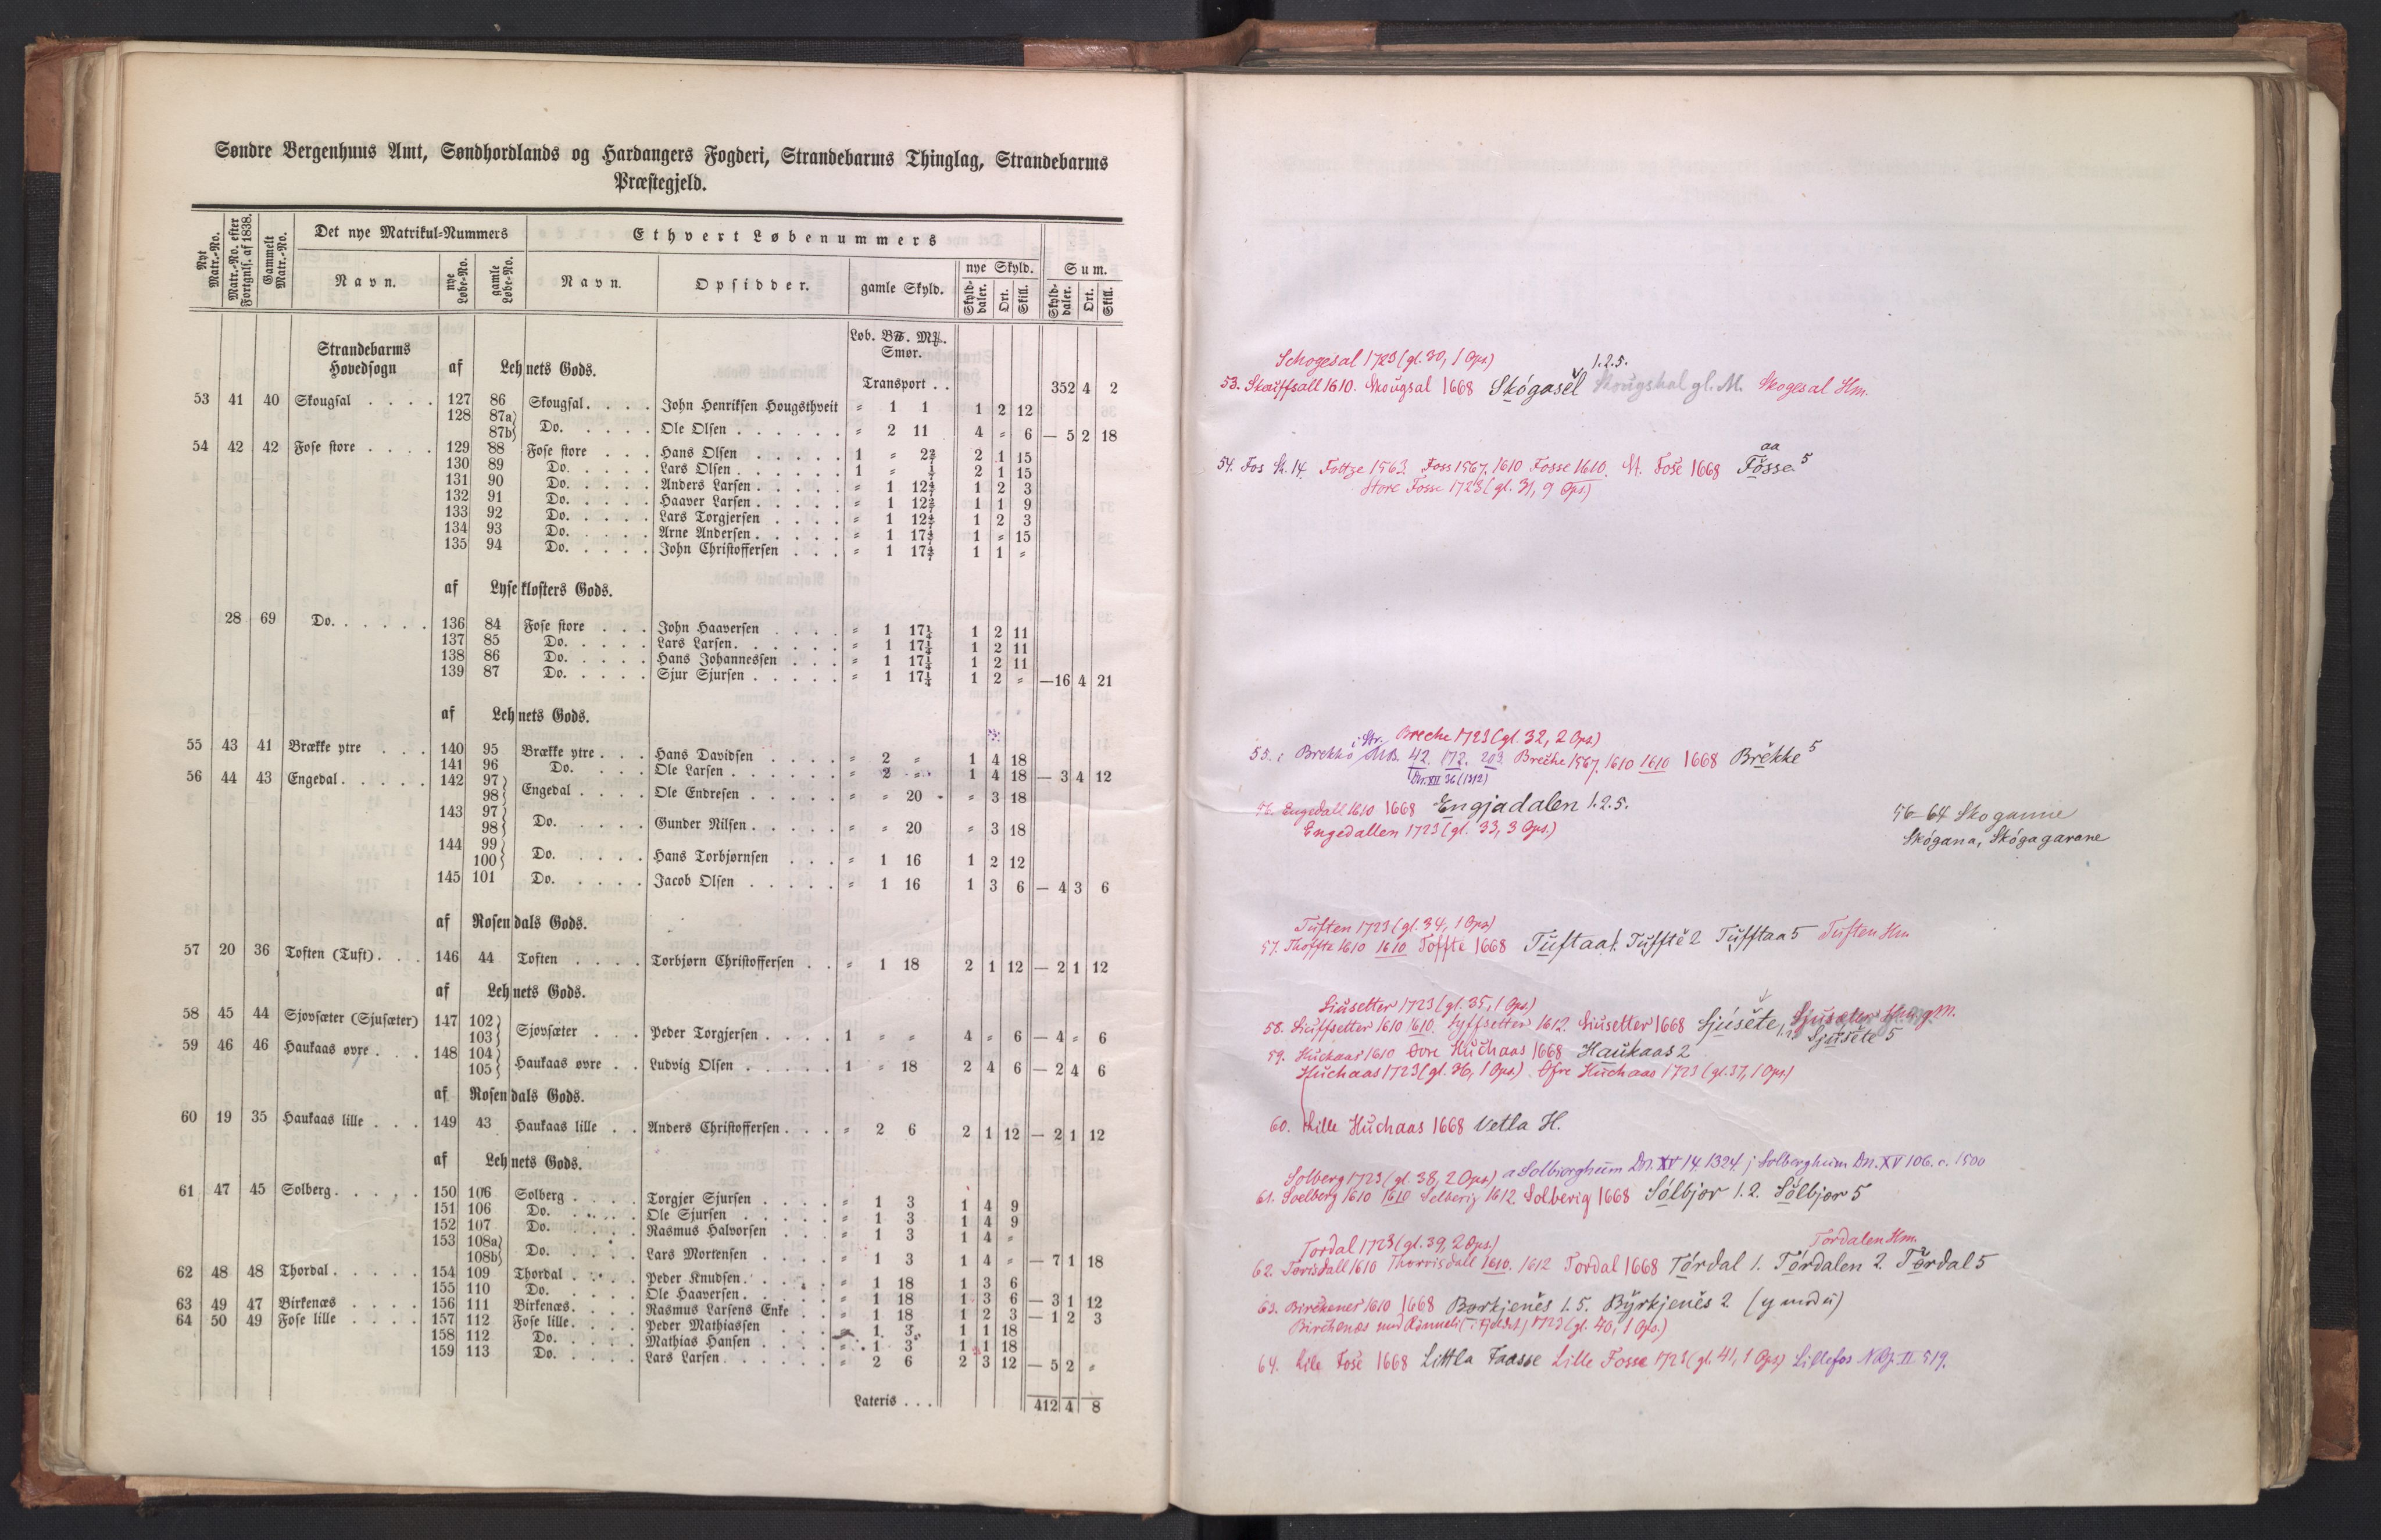 Søndre Bergenhuus Amt, Søndhordlands og Hardangers Fogderi, Strandebarms Thinglag, Strandebarms
Præstegjeld.
Nyt Matr.-No. | Matr.-No. efter Fortgnls. af 1838. | Gammelt Matr.-No. | Det nye Matrikul-Nummers | Ethvert Løbenummers | Sum.
Navn. | nye Løbe-No. | gamle Løbe-No. | Navn. | Opsidder. | gamle Skyld. | nye Skyld. | Skylddaler. | Ort. | Skill. | Skylddaler. | Ort. | Skill.
Strandebarms Hovedsogn af Lehnets Gods. Løb. Smør.
Transport . . 352 4 2
53 41 40 Skougsal . . . . 127 86 Skougsal. . . . John Henriksen Hougsthveit " 1 1 1 2 12
128 87a) 87b) Do. . . . . Ole Olsen . . . . . . " 2 11 4 " 6 — 5 2 18
54 42 42 Fose store . . . . 129 88 Fose store . . . Hans Olsen . . . . . 1 " 2 2/7 2 1 15
130 89 Do. . . . . Lars Olsen . . . . . . 1 " 2 1 15
131 90 Do. . . . . Anders Larsen . . . . . " 1 12 4/7 1 2 3
132 91 Do. . . . . Haaver Larsen . . . . . " 1 12 1 1 9
133 92 Do. . . . . Lars Torgjersen . . . . " 1 12 1 2 3
134 93 Do. . . . . Arne Andersen . . . . . " 1 17 1 " 15
135 94 Do. . . . . John Christoffersen . . . " 1 17 1 1 "
af Lyseklosters Gods.
28 69 Do. . . . . . 136 84 Fose store . . . John Haaversen . . . . " 1 17 1/4 1 2 11
137 85 Do. . . . . Lars Larsen. . . . . . " 1 17 1/4 1 2 11
138 86 Do. . . . . Hans Johannessen . . . " 1 17 1/4 1 2 11
139 87 Do. . . . . Sjur Sjursen . . . . . " 1 17 1/4 1 2 " —16 4 21
af Lehnets Gods.
55 43 41 Brække ytre . . . 140 95 Brække ytre . . . Hans Davidsen . . . . " 2 " 1 4 18
141 96 Do. . . . Ole Larsen . . . . . . " 2 " 1 4 18 — 3 4 12
56 44 43 Engedal . . . . . 142 97) 98) Engedal . . . . Ole Endresen . . . . . " " 20 " 3 18
143 97) 98) Do. . . . . Gunder Nilsen . . . . . " " 20 " 3 18
144 99) 100) Do. . . . . Hans Torbjørnsen . . . " 1 16 1 2 12
145 101 Do. . . . . Jacob Olsen . . . . . " 1 16 1 3 6 — 4 3 6
af Rosendals Gods.
57 20 36 Toften (Tuft) . . . 146 44 Toften . . . . Torbjørn Christoffersen . . " 1 18 2 1 12 — 2 1 12
af Lehnets Gods.
58 45 44 Sjovsæter (Sjusæter) 147 102) 103) Sjovsæter . . . Peder Torgjersen . . . . 1 " " 4 " 6 — 4 " 6
59 46 46 Haukaas øvre . . . 148 104) 105) Haukaas øvre . . Ludvig Olsen . . . . . 1 " 18 2 4 6 — 2 4 6
af Rosendals Gods.
60 19 35 Haukaas lille . . . 149 43 Haukaas lille . . Anders Christoffersen . . . " 2 6 2 1 12 — 2 1 12
af Lehnets Gods.
61 47 45 Solberg . . . . . 150 106 Solberg . . . . Torgjer Sjursen . . . . " 1 3 1 4 9
151 106 Do. . . . . Ole Sjursen . . . . . " 1 3 1 4 9
152 107 Do. . . . . Rasmus Halvorsen . . . " 1 3 1 4 "
153 108a) 108b) Do. . . . . Lars Mortensen . . . . " 1 3 1 4 " — 7 1 18
62 48 48 Thordal . . . . . 154 109 Thordal . . . . Peder Knudsen . . . . . " 1 18 1 3 6
155 110 Do. . . . . Ole Haaversen . . . . . " 1 18 1 3 6 — 3 1 12
63 49 47 Birkenæs . . . . 156 111 Birkenæs. . . . Rasmus Larsens Enke . . " 1 18 1 2 3 — 1 2 3
64 50 49 Fose lille . . . . 157 112 Fose lille . . . . Peder Mathiassen . . . " 1 3 1 1 18
158 112 Do. . . . . Mathias Hansen . . . . " 1 3 1 1 18
159 113 Do. . . . . Lars Larsen . . . . . . " 2 6 2 3 12 — 5 2 "
Lateris . . . 412 4 8
Schogesal 1723 (gl. 30, 1 Ops.) 1.2.5.
53. Skauffsall 1610. Skougsal 1668 Skógasel Skougshal gl. M. Skogesal Hm.
aa
54. Fos St. 14. Foltze 1563. Foss 1567, 1610 Fosse 1610. St. Fose 1668 Fosse 5
Store Fosse 1723 (gl. 31, 9 Ops.)
i Str. Breche 1723 (gl. 32, 2 Ops.)
55. i Brekko MB. 42. 172. 203. Breche 1567. 1610 1610 1668 Brekke 5
Dn. XII 36 (1312)
56. Engedall 1610 1668 Engjadalen 1.2.5.
56–64 Skoganne
Engedallen 1723 (gl. 33, 3 Ops.)
Skógana, Skógagarane
Tuften 1723 (gl. 34, 1 Ops)
57. Thoffte 1610 1610 Toffte 1668 Tuftaa 1. Tuffte 2 Tufftaa 5 Tuften Hm
Siusetter 1723 (gl. 35, 1 Ops.)
58. Siuffsetter 1610 1610. Syffsetter 1612. Siusetter 1668 Sjúsete, Sjusæter Hm. gM.
1.2 Sjusete 5
59. Huckaas 1610 Øvre Huchaas 1668 Haukaas 2
Huchaas 1723 (gl. 36, 1 Ops.). Øfre Huchaas 1723 (gl. 37, 1 Ops.)
60. Lille Huchaas 1668 Vetla H.
Solberg 1723 (gl. 38, 2 Ops) a Solbiorgheim Dn. XV 14 1324 j Solbergheim Dn. XV 106. c. 1500
61. Soelberg 1610 1610 Selberig 1612 Solberig 1668 Sólbjør 1. 2. Sólbjør 5
Tordal 1723 (gl. 39, 2 Ops.) Tordalen Hm.
62. Torisdall 1610 Thorrisdall 1610. 1612 Tordal 1668 Tórdal 1. Tórdalen 2. Tordal 5
63. Birckenes 1610 1668 Børkjenes 1. 5. Byrkjenes 2 (y mod u)
Birchenæs med (i Fjeldet) 1723 (gl. 40, 1 Ops.)
64. Lile Fose 1668 Littla Faasse Lille Fosse 1723 (gl. 41, 1 Ops) Lillefos NBj. II 519.